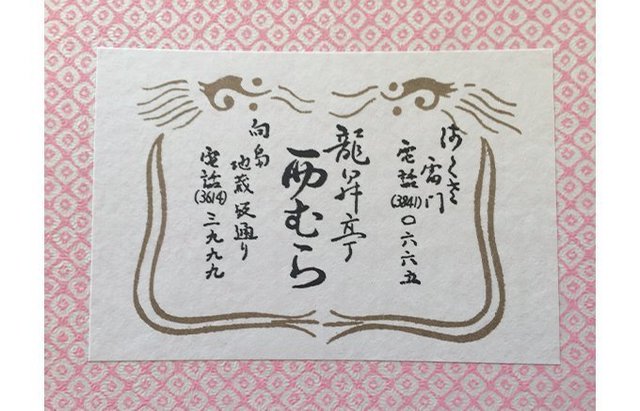 あさくさ
雷門
電話(3841)〇六六五
龍昇亭
西むら
向島
地蔵坂通り
電話(3614)三九九九